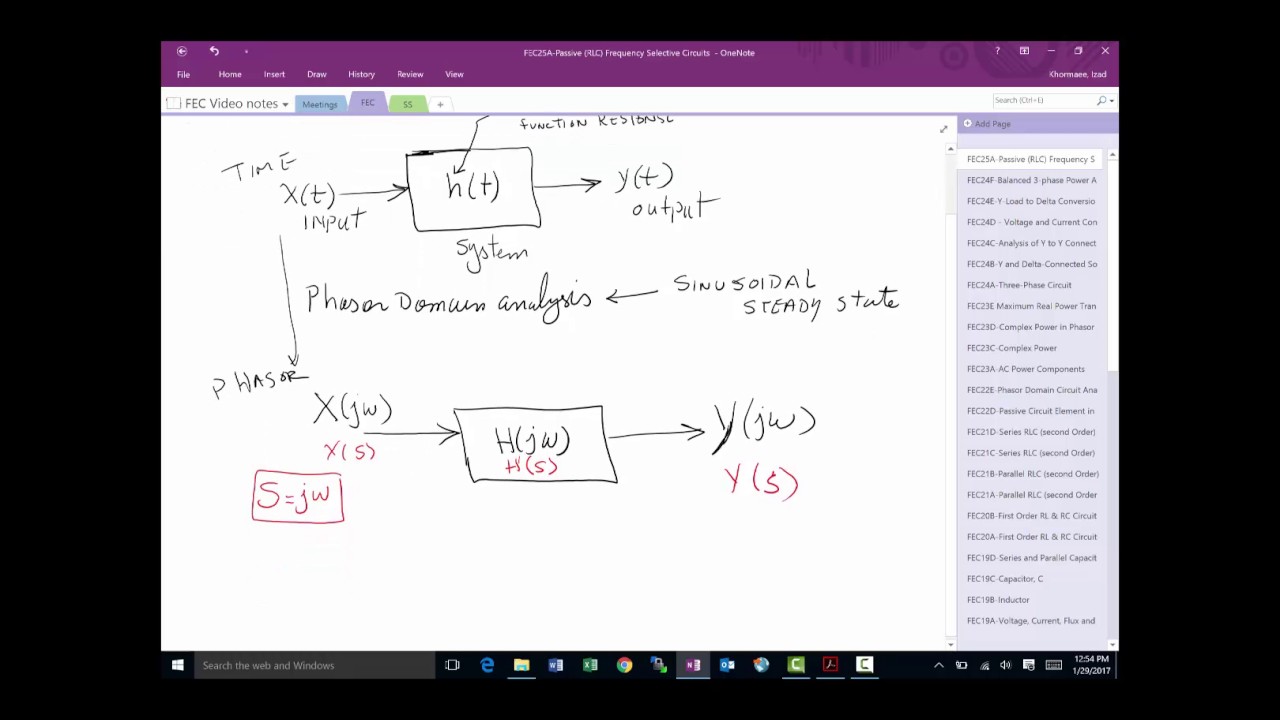 FEC25A-Passive (RLC) Frequency Selective Circuits - OneNote
?
File Home Insert Draw History Review View
Khormaee, Izad
FEC Video notes Meetings FEC SS +
Search (Ctrl+E)
FUNCTION RESPONSE
TIME
X(t)
INPUT
h(t)
System
y(t)
output
Phasor Domain analysis
SINUSOIDAL
STEADY State
PHASOR
X(jω)
X(s)
H(jω)
H(s)
Y(jω)
Y(s)
S=jω
Add Page
FEC25A-Passive (RLC) Frequency S
FEC24F-Balanced 3-phase Power A
FEC24E-Y-Load to Delta Conversio
FEC24D - Voltage and Current Con
FEC24C-Analysis of Y to Y Connect
FEC24B-Y and Delta-Connected So
FEC24A-Three-Phase Circuit
FEC23E Maximum Real Power Tran
FEC23D-Complex Power in Phasor
FEC23C-Complex Power
FEC23A-AC Power Components
FEC22E-Phasor Domain Circuit Ana
FEC22D-Passive Circuit Element in
FEC21D-Series RLC (second Order)
FEC21C-Series RLC (second Order)
FEC21B-Parallel RLC (second Order)
FEC21A-Parallel RLC (second Order
FEC20B-First Order RL & RC Circuit
FEC20A-First Order RL & RC Circuit
FEC19D-Series and Parallel Capacit
FEC19C-Capacitor, C
FEC19B-Inductor
FEC19A-Voltage, Current, Flux and
Search the web and Windows
12:54 PM
1/29/2017